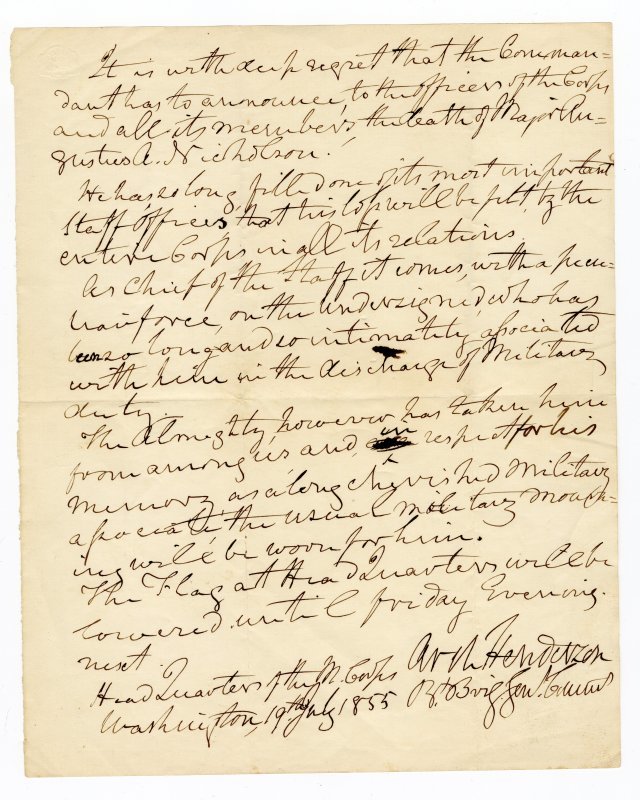 It is with deep regret that the Comman-
dant has to announce to the officers of the Corps
and all its members, the death of Major Au-
gustus A. Nicholson.
He has so long filled one of its most important
Staff Offices that his loss will be felt by the
entire Corps in all its relations.
As Chief of the Staff it comes, with a pecu-
liar force, on the undersigned, who has
been so long and so intimately associated
with him in the discharge of Military
duty.
The Almighty, however, has taken him
from among us and, in respect for his
memory as a long cherished Military
associate the usual military mourn-
ing will be worn for him.
The Flag at Head Quarters will be
lowered until Friday Evening
next.
Arch Henderson
Head Quarters of the M. Corps
Bt Brig Genl Comdt
Washington, 19th July 1855